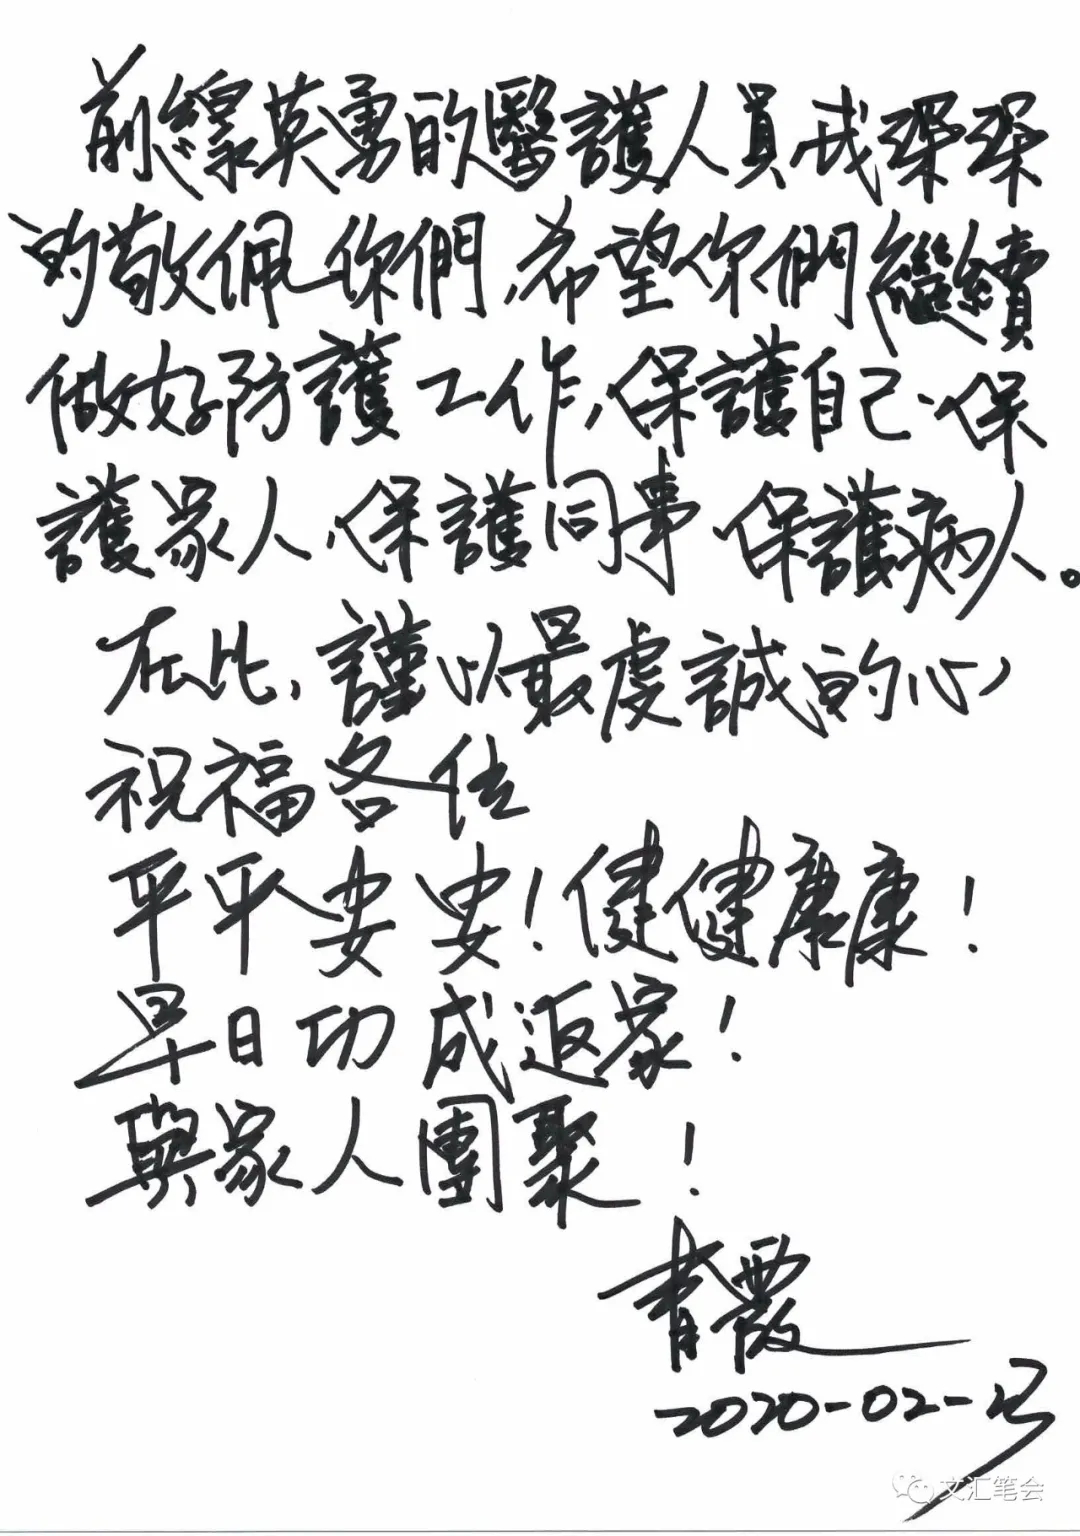 前線英勇的醫護人員,我深深
的敬佩你們,希望你們繼續
做好防護工作,保護自己、保
護家人、保護同事 保護病人。
在此,謹以最虔誠的心
祝福各位
平平安安!健健康康!
早日功成返家!
與家人團聚!
青霞
2020-02-
文汇笔会